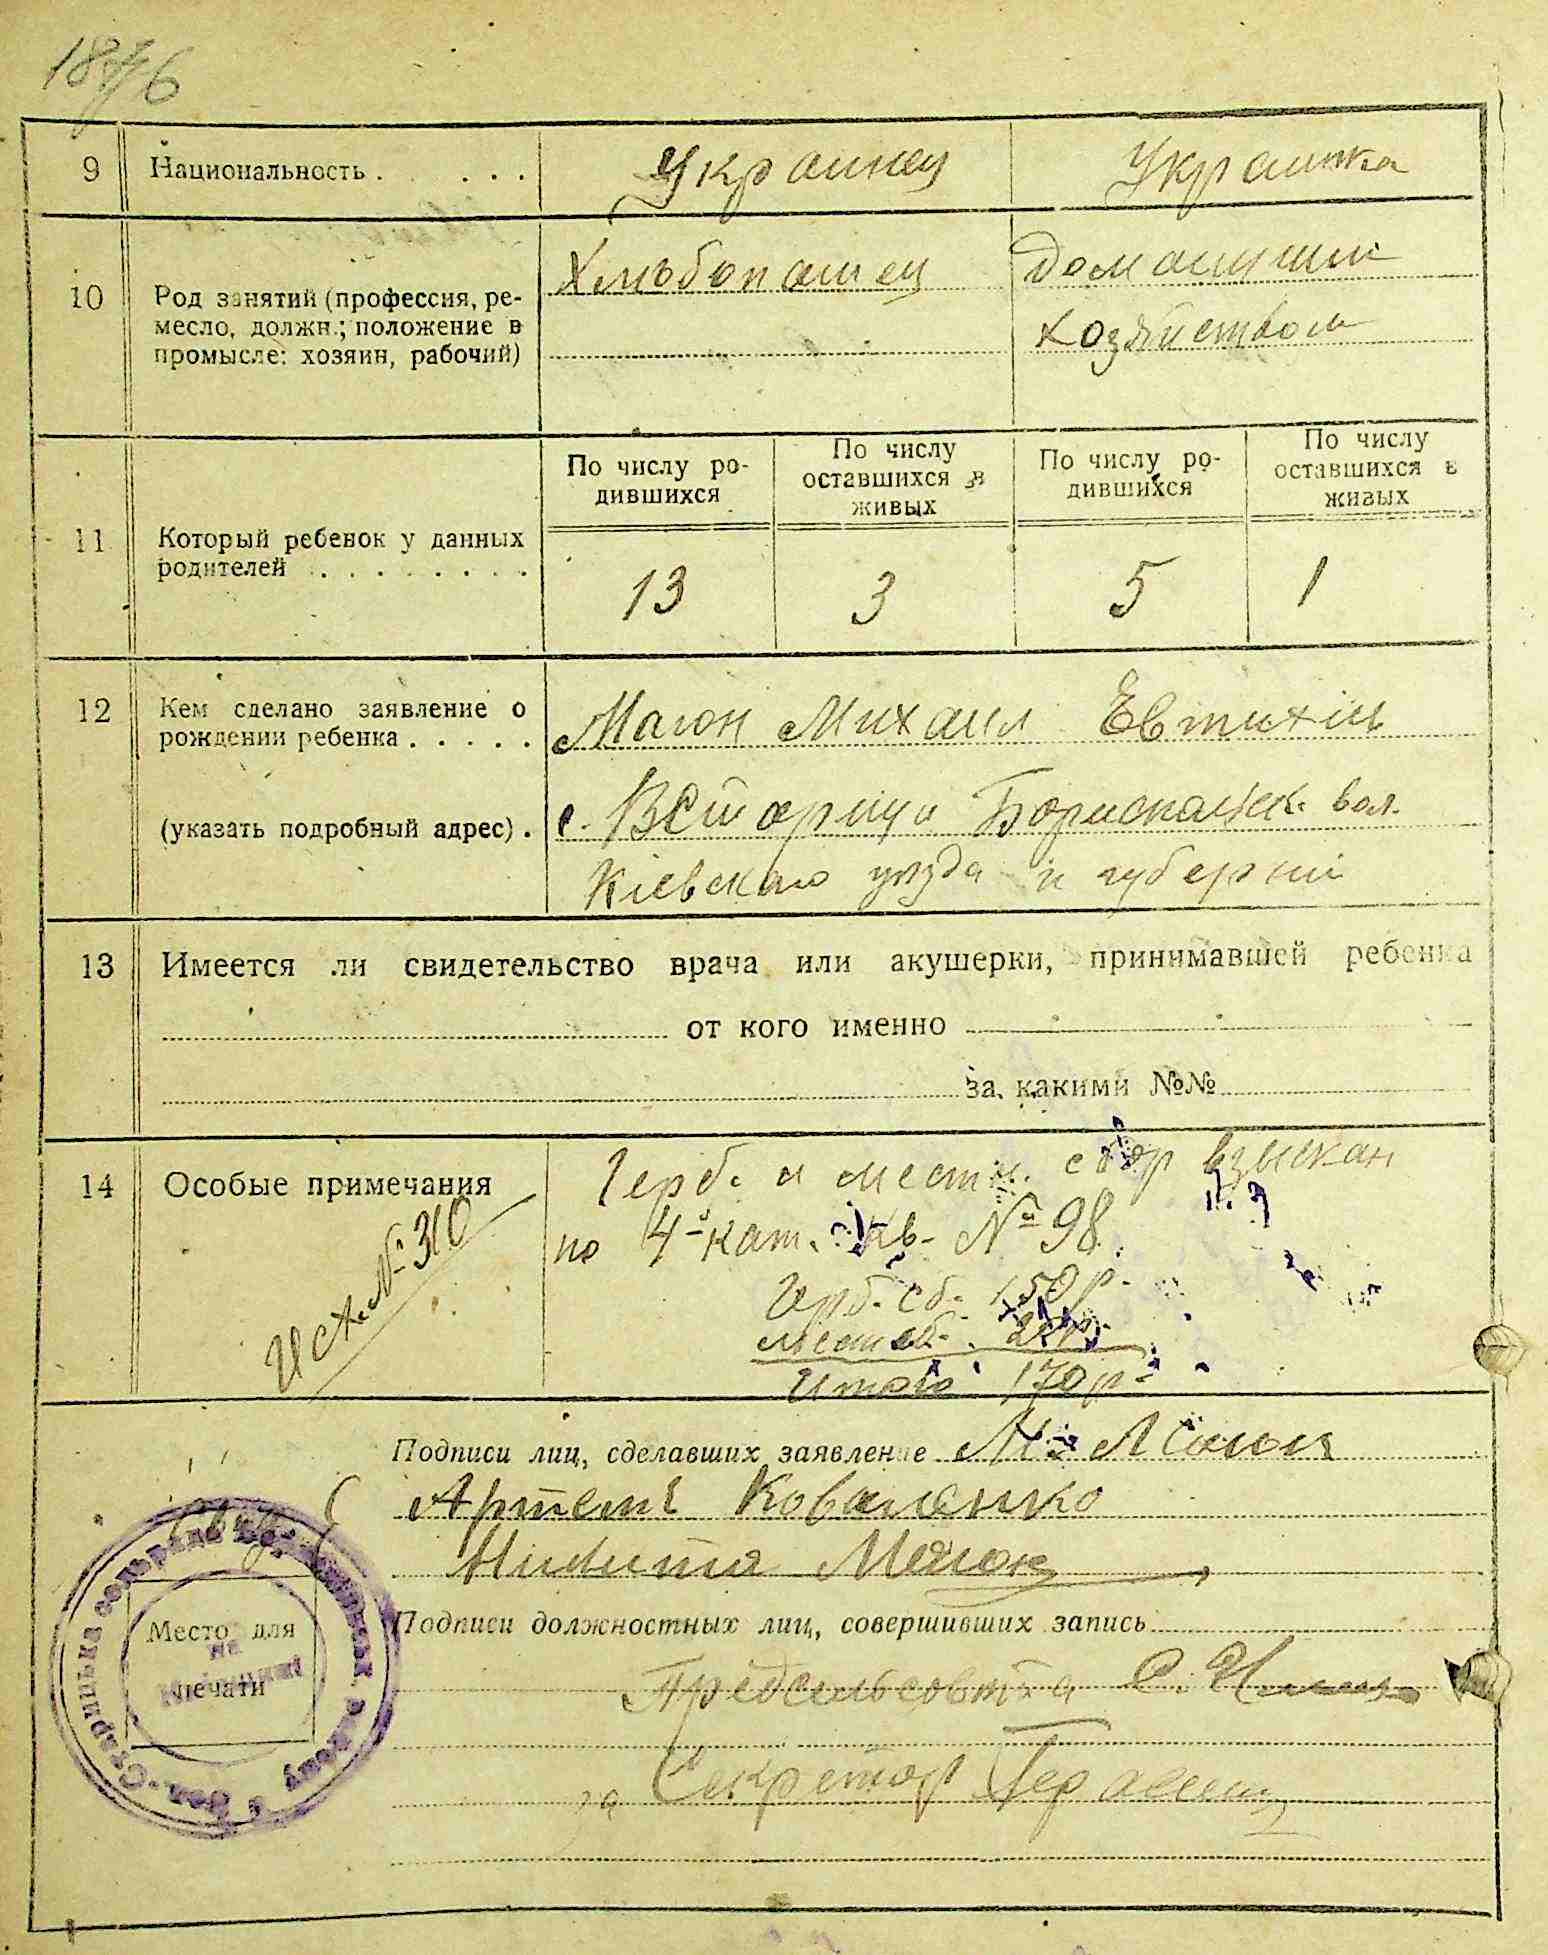 9 Национальность . . . . . Украинец Украинка
10 Род занятий (профессия, ре-
месло, должн.; положение в
промысле: хозяин, рабочий)
Хлѣбопашец
домашним
хозяйством
11 Который ребенок у данных
родителей . . . . . . . .
По числу ро-
дившихся
По числу
оставшихся в
живых
По числу ро-
дившихся
По числу
оставшихся в
живых
13 3 5 1
12 Кем сделано заявление о
рождении ребенка . . . . .
(указать подробный адрес) .
Михаил Евтихіи
с. Бориспольск. вол.
Кіевскаго уезда и губернии
13 Имеется ли свидетельство врача или акушерки, принимавшей ребенка
от кого именно
за какими №№
14 Особые примечания
Исх. № 310
Герб. и местн. сбор взыскан
по 4-й кат. Кв. № 98.
Герб. сб. 150 р.
Мест. сб.
Итого 170 р.
Подписи лиц, сделавших заявление М.
Артемъ Коваленко
Никита
Подписи должностных лиц, совершивших запись
Предсельсовета
Секретар
Место для
печати